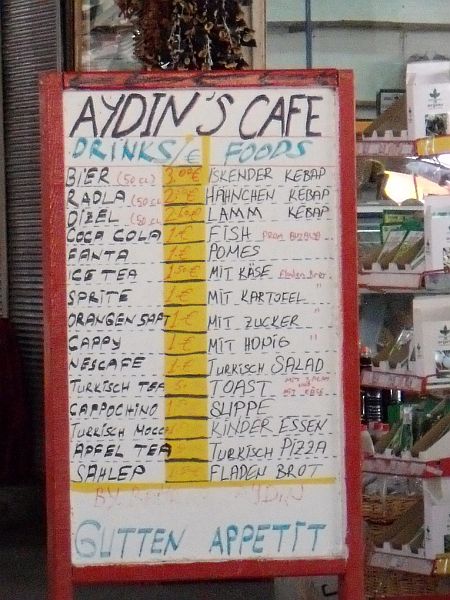 AYDIN'S CAFE
DRINKS / € FOODS
BiER (50 cL) 3.00€ İSKENDER KEBAP
RADLA (50 cL) HAHNCHEN KEBAP
DİZEL (50 cL) LAMM KEBAP
COCA COLA 1€ FISH
FANTA 1€ POMES
ICE TEA 1.50€ MIT KÄSE Fladen Brot
SPRİTE 1€ MIT KARTOFEL "
ORANGEN SAFT 1€ MIT ZUCKER "
CAPPY 1€ MIT HONIG "
NESCAFE 1€ TURKISCH SALAD
TURKISCH TEA TOAST MIT SALAM MIT KÄSE
CAPPOCHINO SUPPE
TURKISCH MOCCA KINDER ESSEN
APFEL TEA TURKISCH PIZZA
SAHLEP FLADEN BROT
AYDIN
GUTTEN APPETIT